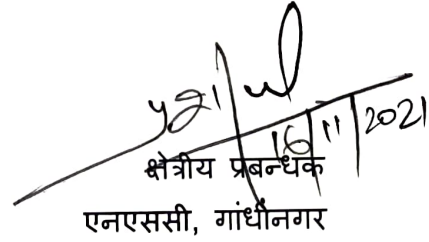 16/11/2021
क्षेत्रीय प्रबन्धक
एनएससी, गांधीनगर